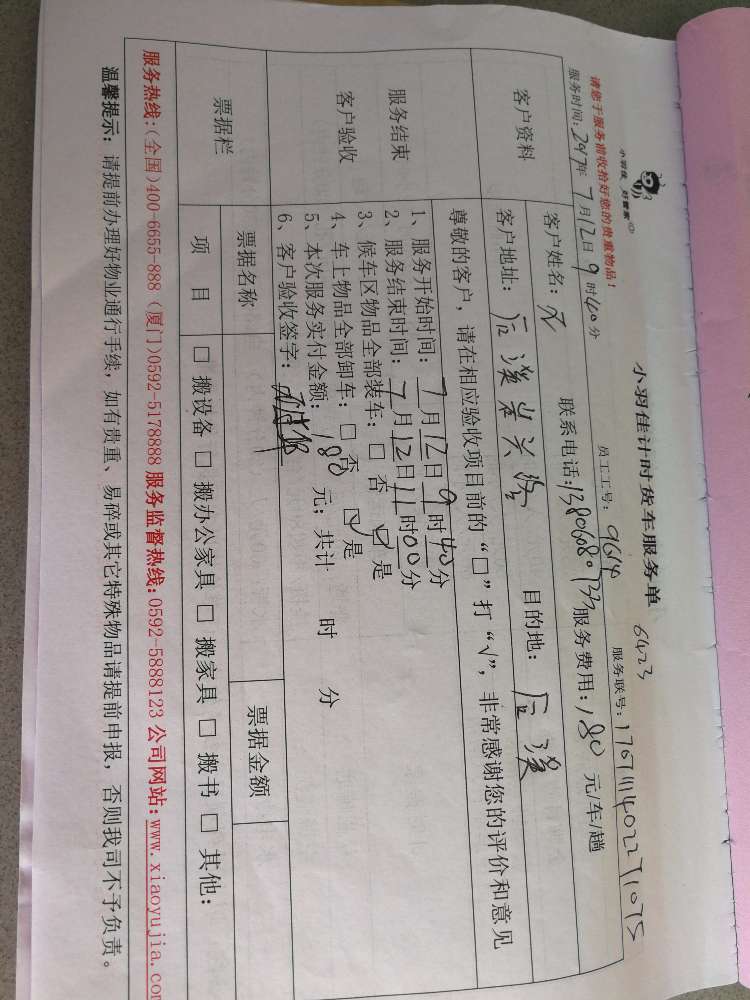 小羽佳 好管家
小羽佳计时货车服务单 6423
请您于服务前收拾好您的贵重物品!
员工工号: 9614 服务联号:
服务时间: 2017年 7月12日9时40分
客户资料
客户姓名: 联系电话: 服务费用: 180 元/车/趟
客户地址: 后溪 目的地: 后溪
服务结束
客户验收
尊敬的客户,请在相应验收项目前的“□”打“√”,非常感谢您的评价和意见
1、服务开始时间: 7月12日9时40分
2、服务结束时间: 7月12日11时00分
3、候车区物品全部装车: □ 否 ☑ 是
4、车上物品全部卸车: □ 否 ☑ 是
5、本次服务实付金额: 180 元; 共计 时 分
6、客户验收签字:
票据栏
票据名称 票据金额
项 目 □ 搬设备 □ 搬办公家具 □ 搬家具 □ 搬书 □ 其他:
服务热线:(全国)400-6655-888 (厦门)0592-5178888 服务监督热线: 0592-5888123 公司网站: www.xiaoyujia.com
温馨提示: 请提前办理好物业通行手续, 如有贵重、易碎或其它特殊物品请提前申报, 否则我司不予负责。